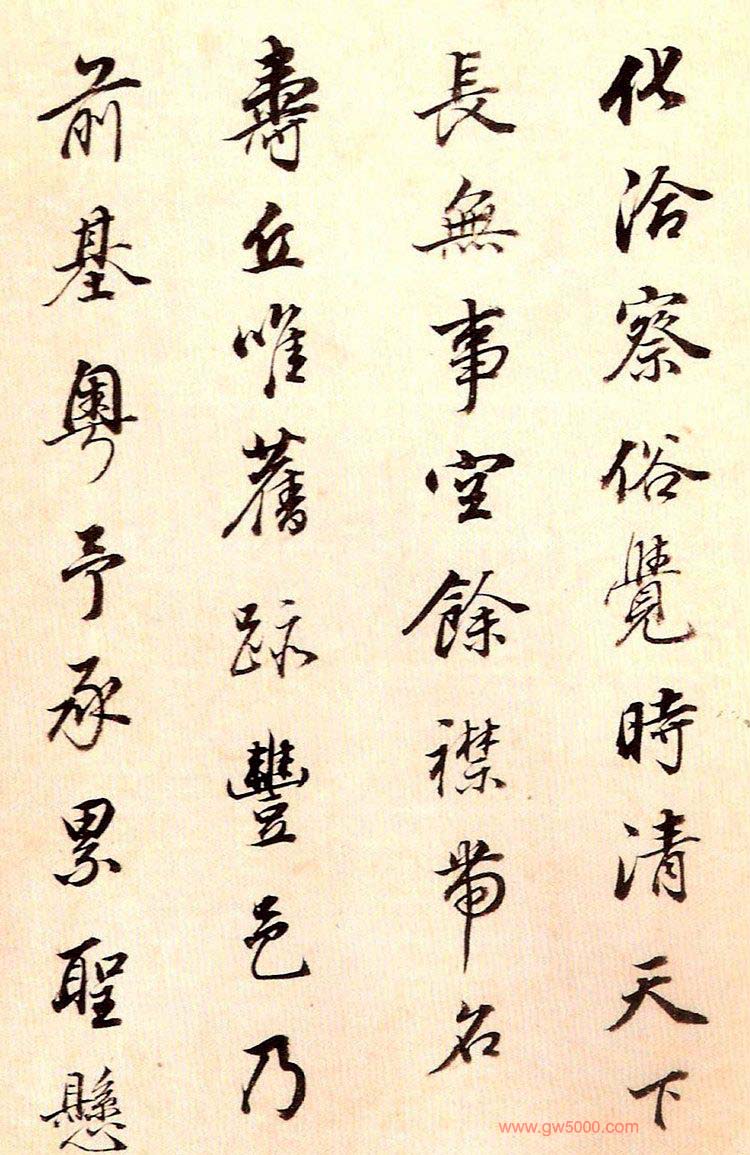 化洽察俗覺時清天下
長無事空餘襟帶名
壽丘唯舊跡豐邑乃
前基粵予承累聖懸
www.gw5000.com